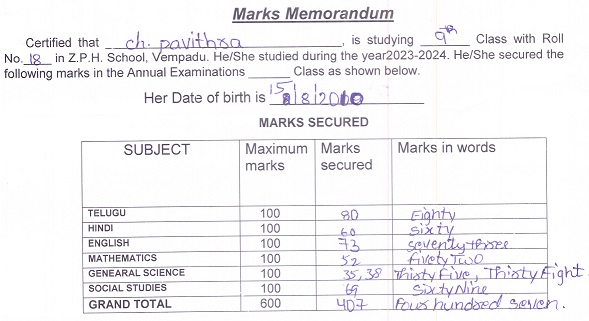 Marks Memorandum
Certified that ch. pavithra, is studying 9th Class with Roll
No. 18 in Z.P.H. School, Vempadu. He/She studied during the year2023-2024. He/She secured the
following marks in the Annual Examinations ______ Class as shown below.
Her Date of birth is 15/8/2010
MARKS SECURED
SUBJECT Maximum marks Marks secured Marks in words
TELUGU 100 80 Eighty
HINDI 100 60 Sixty
ENGLISH 100 73 Seventy three
MATHEMATICS 100 52 fivety Two
GENEARAL SCIENCE 100 35, 38 Thirty Five, Thirty Eight.
SOCIAL STUDIES 100 69 Sixty Nine
GRAND TOTAL 600 407 Four hundred seven.